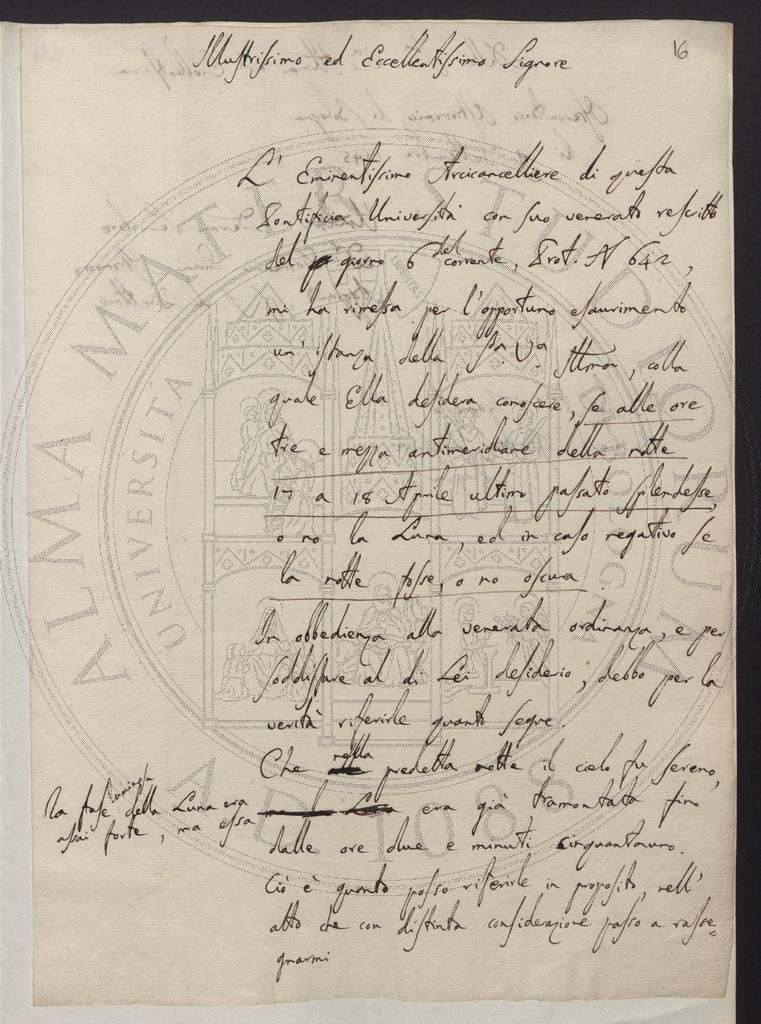 16
Illustrissimo ed Eccellentissimo Signore
L' Eminentissimo Arcicancelliere di questa
Pontificia Università con suo venerato rescritto
del giorno 6 del corrente, Prot. N 642,
mi ha rimessa per l'opportuno esaurimento
un' istanza della Sa Va. Illma, colla
quale Ella desidera conoscere, se alle ore
tre e mezza antimeridiane della notte
17 a 18 Aprile ultimo passato splendesse,
o no la Luna, ed in caso negativo se
la notte fosse, o no oscura
In obbedienza alla venerata ordinanza, e per
soddisfare al di Lei desiderio, debbo per la
verità riferirle quanto segue.
Che nella predetta notte il cielo fu sereno,
la fase luminosa della Luna era
assai forte, ma essa
era già tramontata fino
dalle ore due e minuti cinquantauno.
Ciò è quanto posso riferirle in proposito, nell'
atto che con distinta considerazione passo a rasse=
gnarmi
ALMA MATER STUDIORUM
UNIVERSITÀ DI BOLOGNA
A.D. 1088